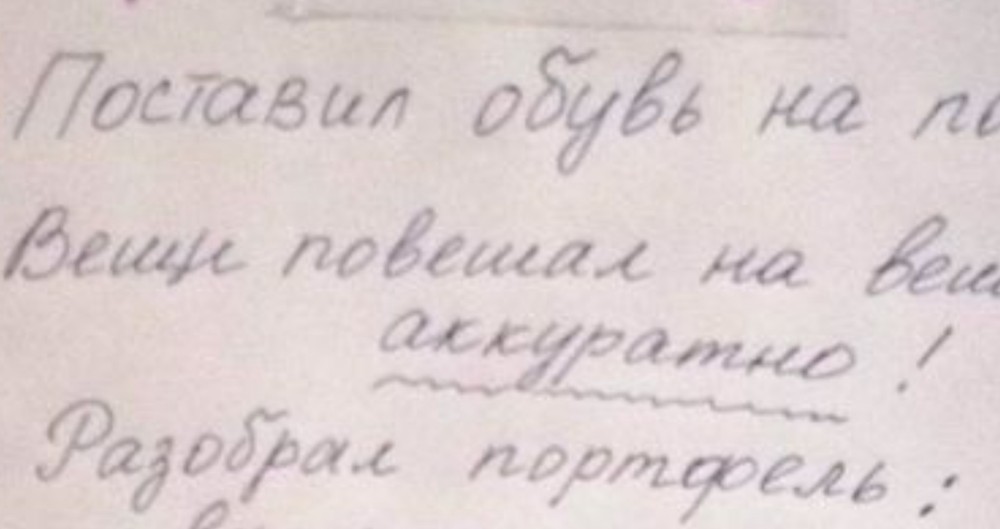 Поставил обувь на
Вещи повешал на
аккуратно!
Разобрал портфель: